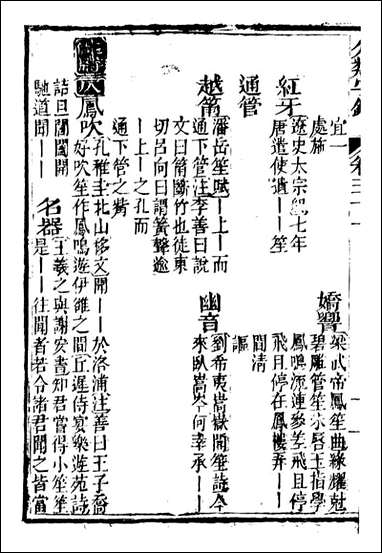 宜一
處施
紅牙 遼史太宗紀七年
唐遣使遺——笙
通管
越箭 潘岳笙賦—上—而
通下管注李善曰說
文曰箭斷竹也徒東
切呂向曰謂簧聲逾
—上—之孔而
通下管之觜
嬌響 梁武帝鳳笙曲綠耀尅
碧雕管笙朱唇玉指學
鳳鳴流連參差飛且停
飛且停在鳳樓弄——
間清
謳
幽音 劉希夷嵩嶽聞笙詩今
來臥嵩岑何幸承——
鳳吹 孔稚圭北山移文聞——於洛浦注善曰王子喬
好吹笙作鳳鳴遊伊雒之間丘遲侍宴樂遊苑詩
詰旦閶闔開
馳道聞——
名器 王羲之與謝安書知君當得小笙笙
是——往聞者若今諸君聞之皆當